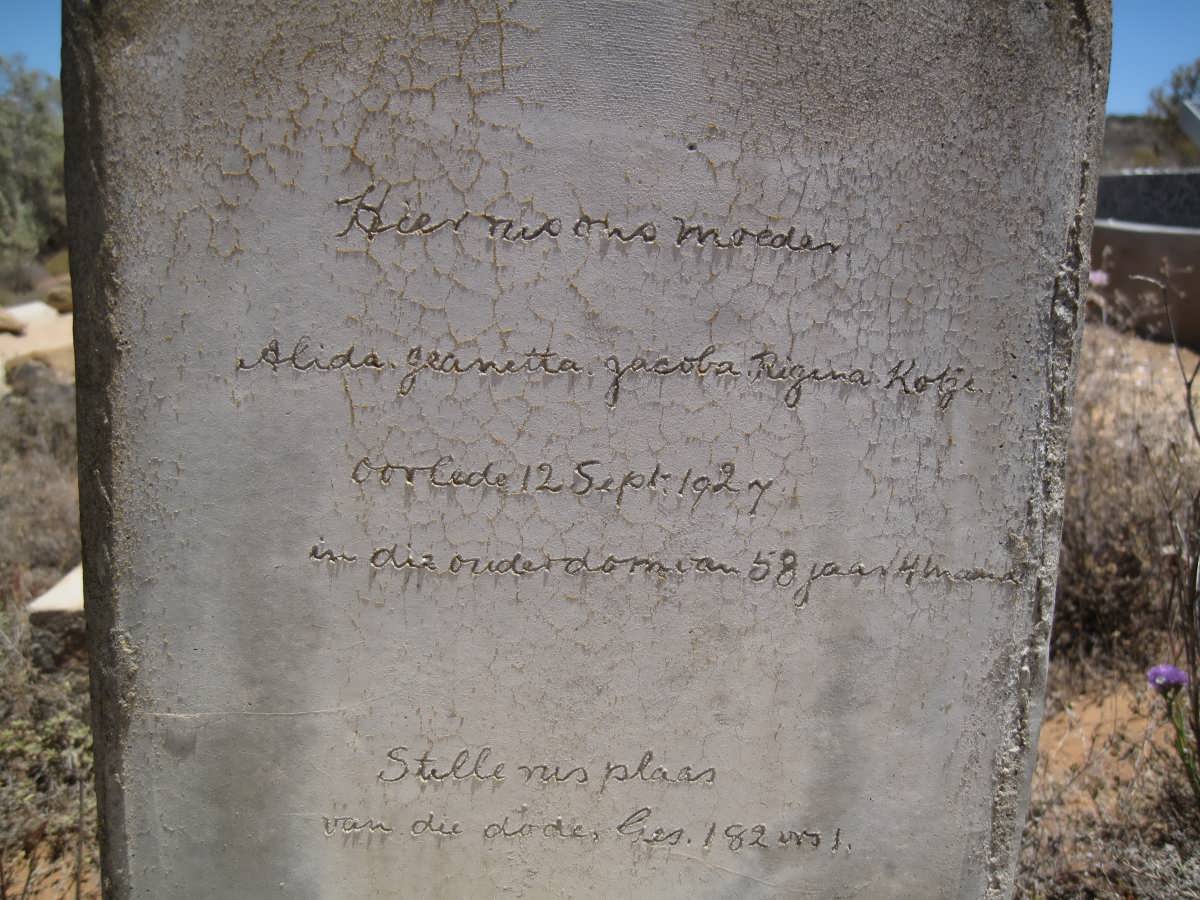 Hier rus ons moeder
Alida Jeanetta Jacoba Regina Kotze
oorlede 12 Sept. 1927
in die ouderdom van 58 jaar 4 maand
Stelle rus plaas
van die dode, Ges. 182 vrs 1.